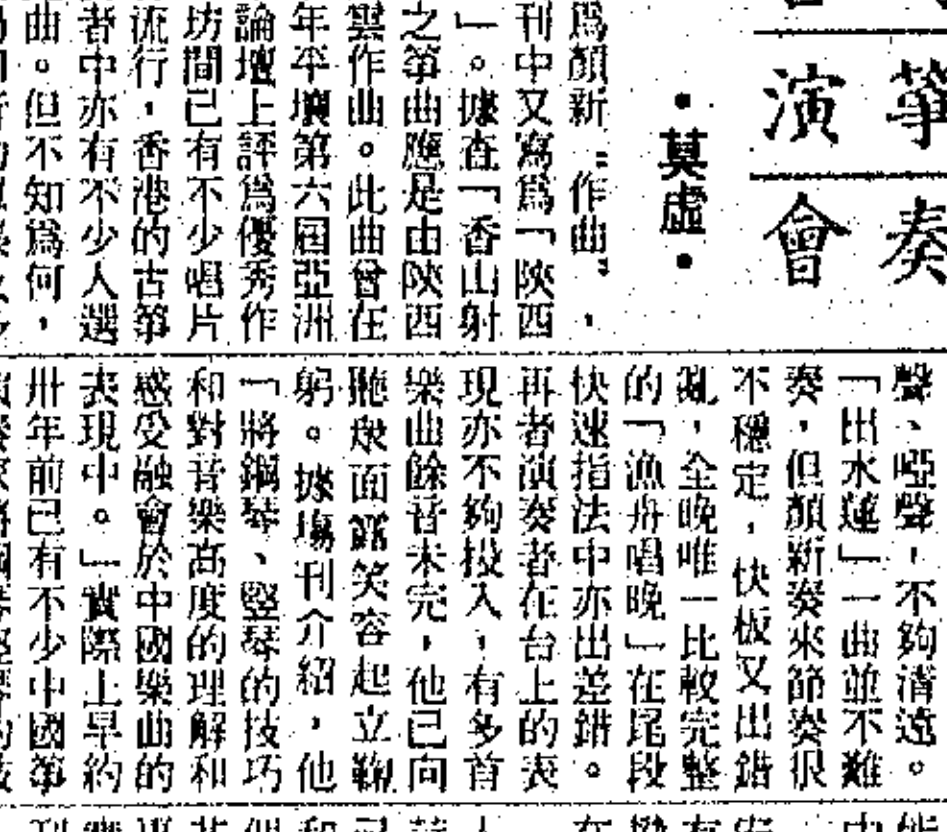 箏奏
演會
•莫虛•
爲顏新「作曲」，
刊中又寫爲「陝西
」。據查「香山射
之箏曲應是由陝西
雲作曲。此曲曾在
年平壤第六屆亞洲
論壇上評爲優秀作
坊間已有不少唱片
流行，香港的古箏
者中亦有不少人選
曲。但不知爲何，
聲、啞聲，不夠清遠。
「出水蓮」一曲並不難
奏，但顏新奏來節奏很
不穩定，快板又出錯
亂，全晚唯一比較完整
的「漁舟唱晚」在尾段
快速指法中亦出差錯。
再者演奏者在台上的表
現亦不夠投入，有多首
樂曲餘音未完，他已向
聽衆面露笑容起立鞠
躬。據塲刊介紹，他
「將鋼琴、豎琴的技巧
和對音樂高度的理解和
感受融會於中國樂曲的
表現中。」實際上早約
卅年前已有不少中國箏